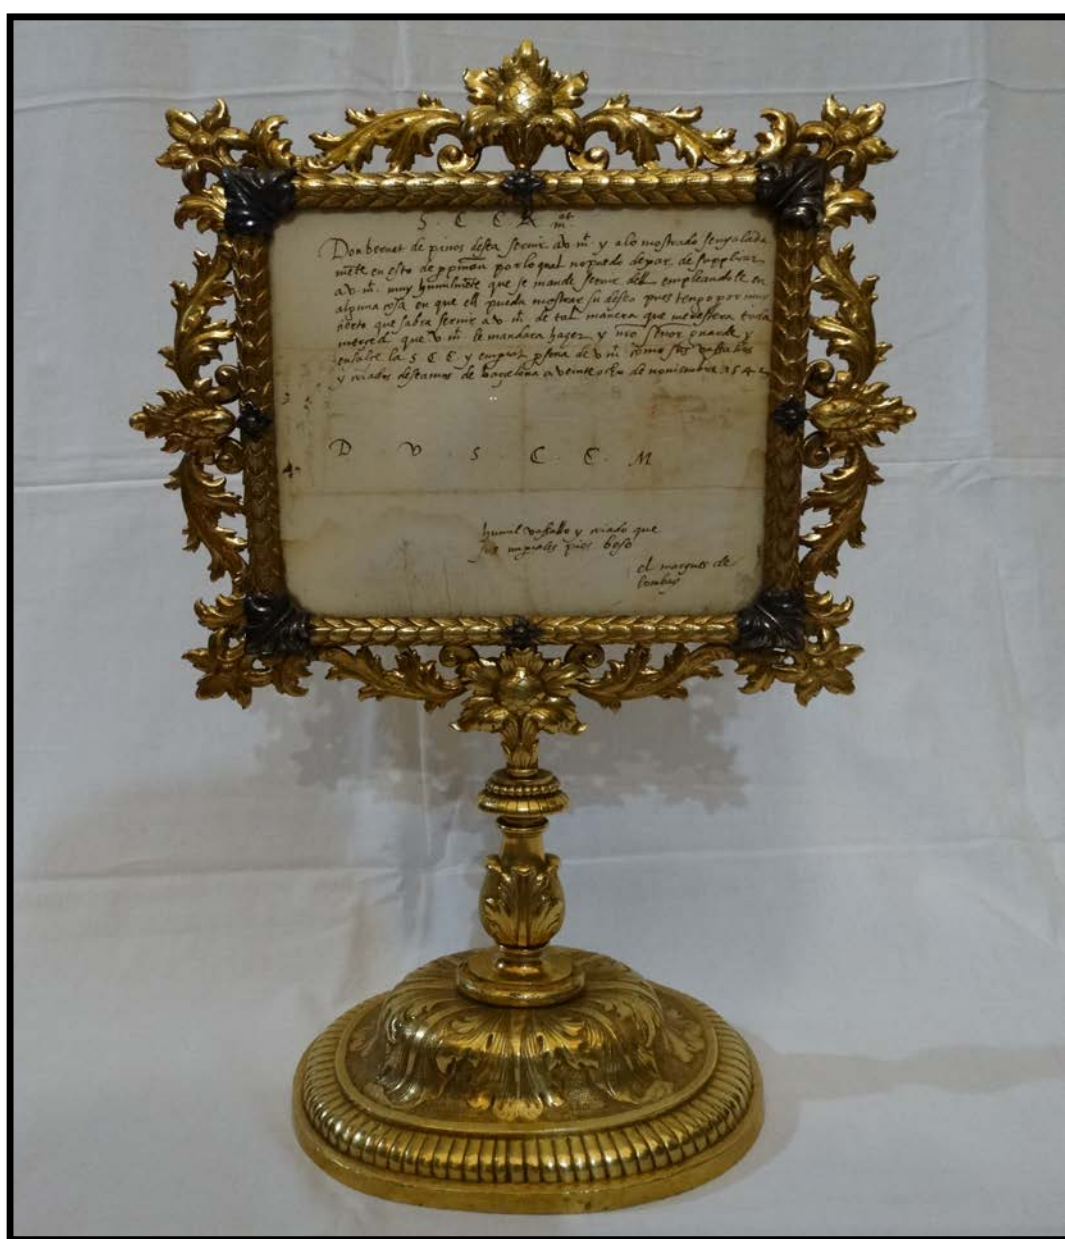 S . C . C . R . mat.
Don bernat de pinos desea servir a v. m. y a lo mostrado senyalada
mẽte en esto de ppiñan por lo qual no puedo dexar de supplicar
a v. m. muy humilmẽte que se mande servir dell empleandole en
alguna cosa en que ell pueda mostrar su deseo pues tengo por muy
cierto que sabra servir a v. m. de tal manera que merescera toda
merced que v. m. le mandara hazer y nro señor guarde y
ensalce la S C C y emperal persona de v. m. como sus vassallos
y criados deseamos de barcelona a veinte ocho de noviembre 1542
D . V . S . C . C . M
humil vassallo y criado que
sus imperiales pies besa
el marques de
lombay